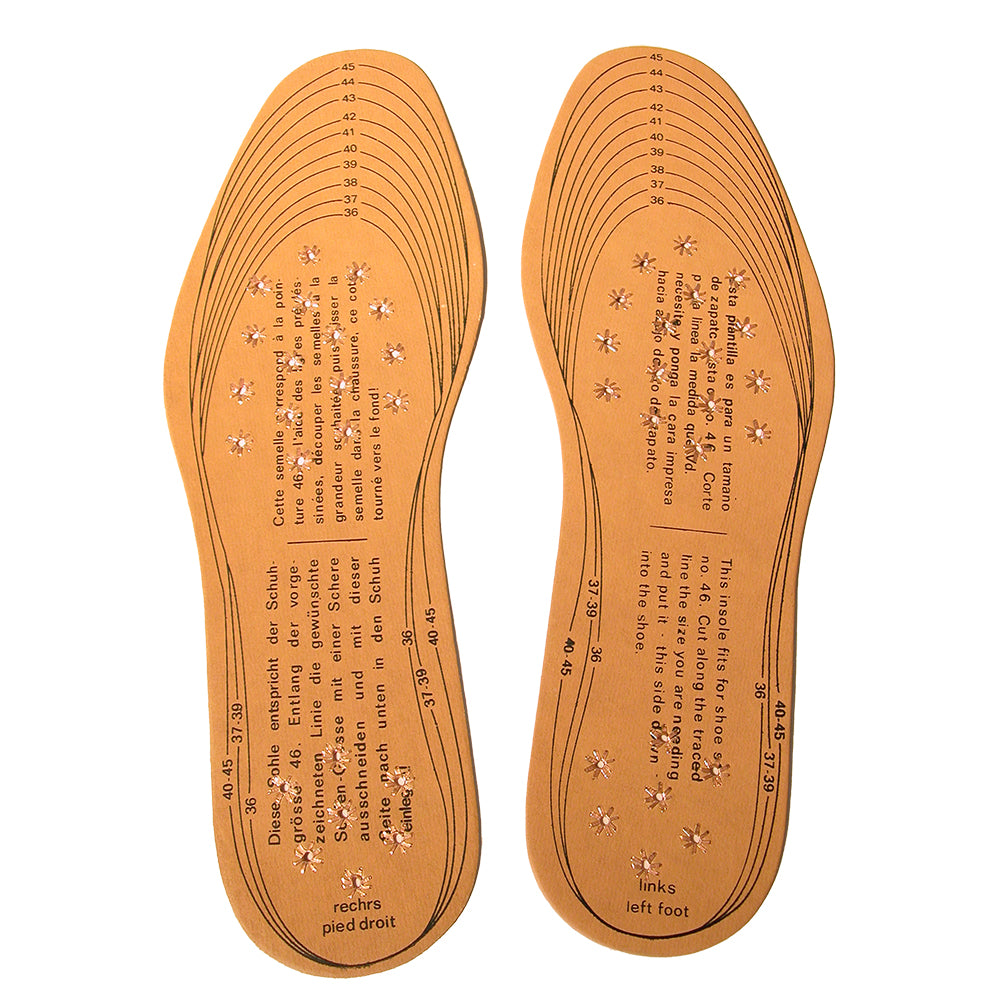 45
44
43
42
41
40
39
38
37
36
Cette semelle correspond à la poin-
ture 46. l'aide des
sinées, découper les semelles à la
grandeur souhaitée puis
semelle dans la chaussure, ce coté
tourné vers le fond!
Diese Sohle entspricht der Schuh-
grösse 46. Entlang der vorge-
zeichneten Linie die gewünschte
mit einer Schere
ausschneiden und mit dieser
Seite nach unten in den Schuh
36
40-45
37-39
37-39
40-45
36
rechrs
pied droit
45
44
43
42
41
40
39
38
37
36
sta plantilla es para un tamano
de zapato no. 46. Corte
linea la medida que Vd.
necesite y ponga la cara impresa
hacia
This insole fits for shoe
no. 46. Cut along the traced
line the size you are needing
and put it - this side down -
into the shoe.
37-39
36
40-45
36
40-45
37-39
links
left foot